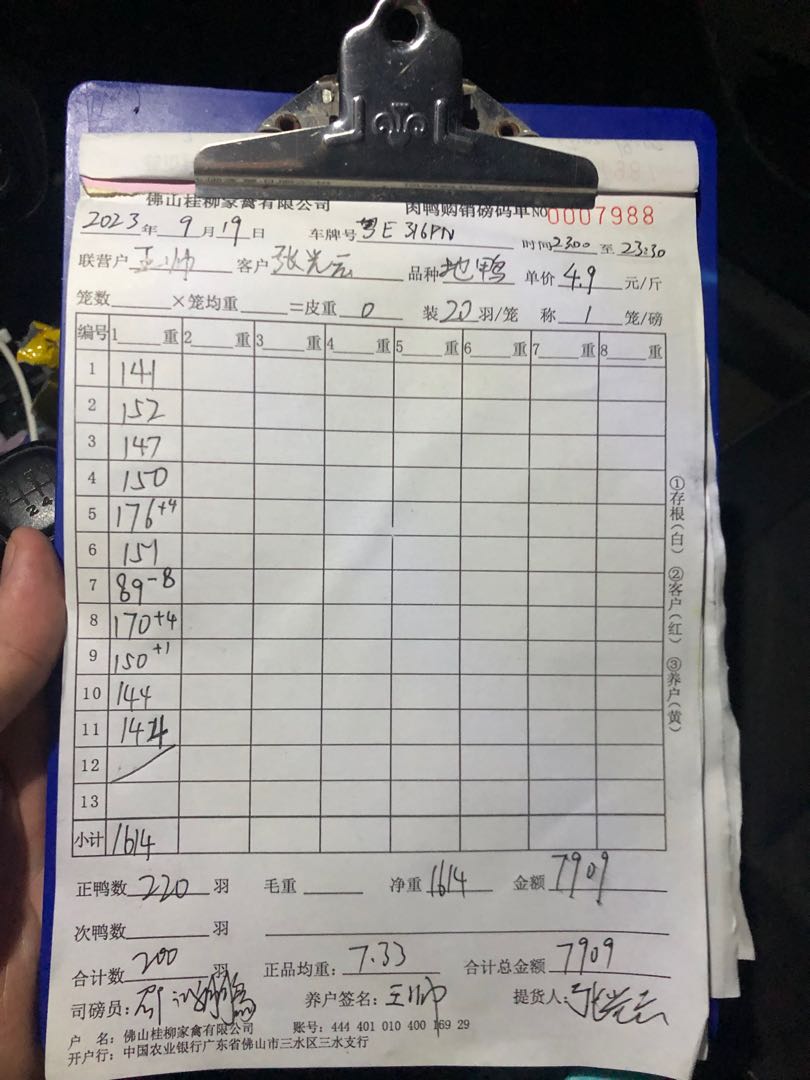 佛山桂柳家禽有限公司 肉鸭购销磅码单 NO 0007988
2023年 9月19日 车牌号 粤E 316PN 时间2300 至 23:30
联营户 王帅 客户 张光云 品种 地鸭 单价 4.9 元/斤
笼数 ×笼均重 =皮重 0 装 20 羽/笼 称 1 笼/磅
编号 1 重 2 重 3 重 4 重 5 重 6 重 7 重 8 重
1 141
2 152
3 147
4 150
5 176+4
6 151
7 89-8
8 170+4
9 150+1
10 144
11 144
12
13
小计 1614
①存根(白) ②客户(红) ③养户(黄)
正鸭数 220 羽 毛重 净重 1614 金额 7909
次鸭数 羽
合计数 200 羽 正品均重: 7.33 合计总金额 7909
司磅员: 养户签名: 王帅 提货人: 张光云
户 名: 佛山桂柳家禽有限公司 账号: 444 401 010 400 169 29
开户行: 中国农业银行广东省佛山市三水区三水支行